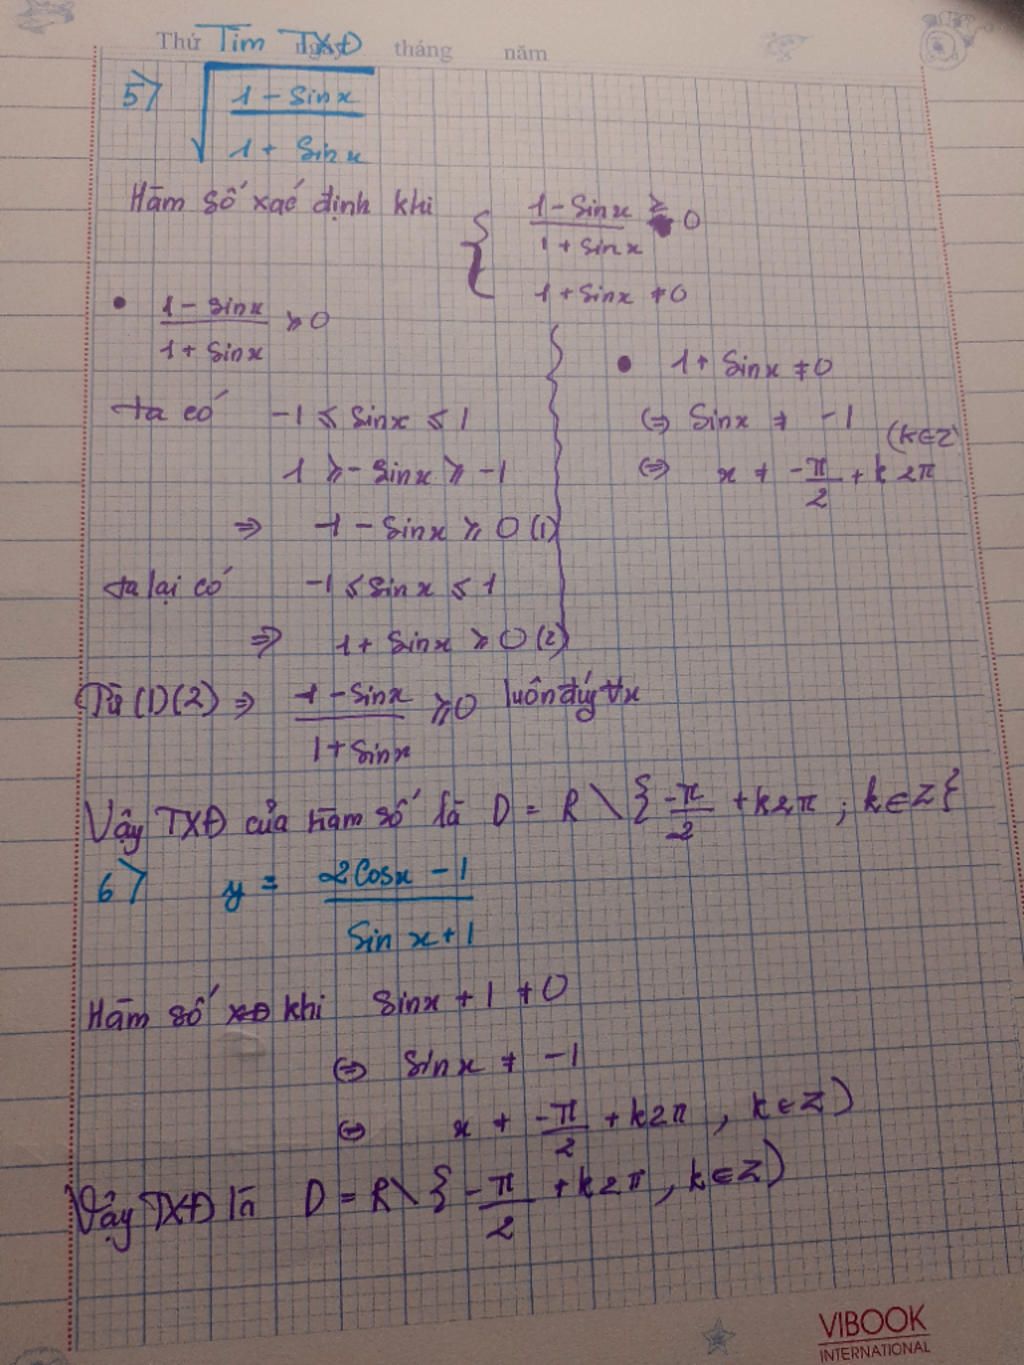 Thứ ngày tháng năm
Tìm TXĐ
5> √((1 - Sinx)/(1 + Sinx))
Hàm số xác định khi { (1 - Sinx)/(1 + Sinx) ≥ 0
1 + Sinx ≠ 0
• (1 - Sinx)/(1 + Sinx) ≥ 0
ta có -1 ≤ Sinx ≤ 1
1 ≥ - Sinx ≥ -1
⇒ 1 - Sinx ≥ 0 (1)
ta lại có -1 ≤ Sinx ≤ 1
⇒ 1 + Sinx ≥ 0 (2)
• 1 + Sinx ≠ 0
⇔ Sinx ≠ -1
⇔ x ≠ -π/2 + k2π (k∈Z)
Từ (1)(2) ⇒ (1 - Sinx)/(1 + Sinx) ≥ 0 luôn đúg ∀x
Vậy TXĐ của hàm số là D = R \ { -π/2 + k2π ; k∈Z }
6> y = (2Cosx - 1)/(Sin x + 1)
Hàm số XĐ khi Sinx + 1 ≠ 0
⇔ Sinx ≠ -1
⇔ x ≠ -π/2 + k2π , k∈Z)
Vậy TXĐ là D = R \ { -π/2 + k2π , k∈Z)
VIBOOK
INTERNATIONAL